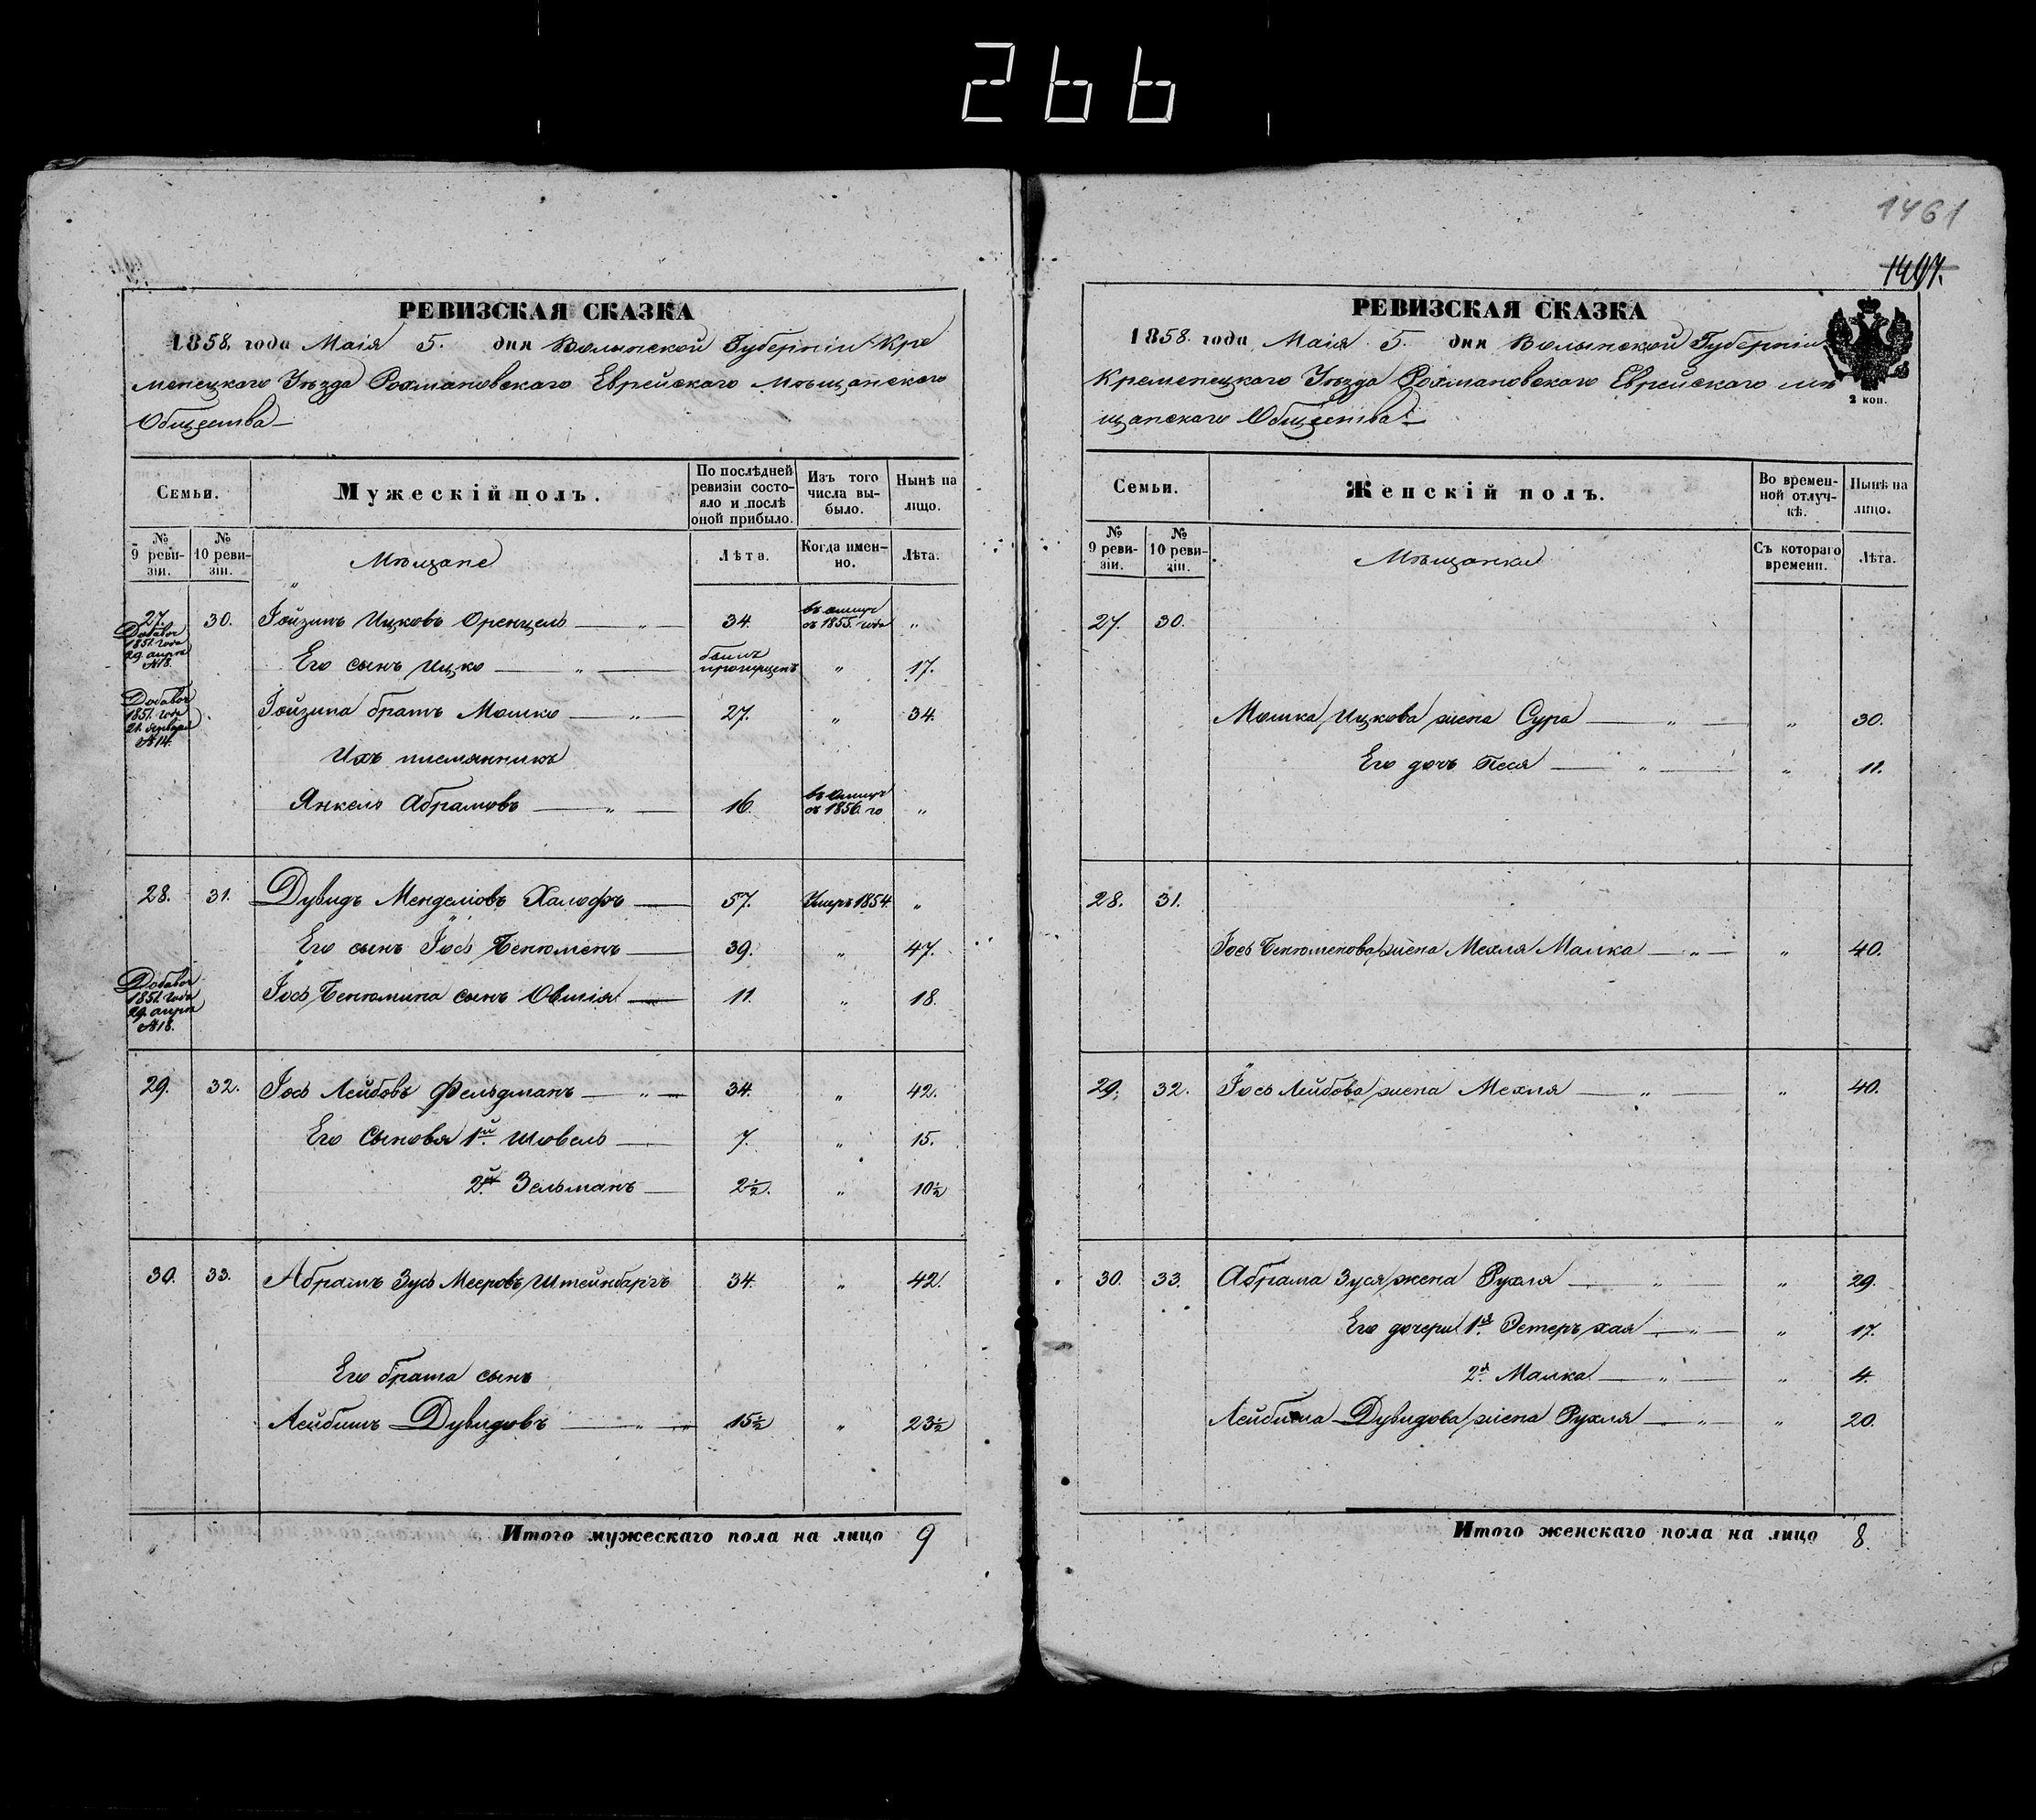 266
РЕВИЗСКАЯ СКАЗКА
1858. года Маія 5. дня Волынской Губерніи Кре
менецкаго Уѣзда Рохмановскаго Еврейскаго Мѣщанскаго
Общества
Семьи.
Мужескій полъ.
По послѣдней ревизіи состо-
яло и послѣ
оной прибыло.
Изъ того
числа вы-
было.
Нынѣ на
лицо.
№
9 реви-
зіи.
№
10 реви-
зіи.
Мѣщане
Лѣта.
Когда имен-
но.
Лѣта.
27. 30. Іойзипъ Ицковъ Оренцель — " — 34. въ
съ 1855. года "
Добавоч
1851. года
29. апрѣля
№18.
Его сынъ Ицко — " — былъ
пропущенъ " 17.
Добавоч
1851. года
21. февраля
№14.
Іойзипа братъ Мошко — " — 27. " 34.
Ихъ племянникъ
Янкель Абрамовъ — " — 16. въ
съ 1856. го "
28. 31. Дувидъ Менделіовъ Халофъ — 57. Умеръ 1854. "
Его сынъ Іось Бенюменъ — 39. " 47.
Добавоч
1851. года
29. апрѣля
№18.
Іось Бенюмина сынъ Овшія — 11. " 18.
29. 32. Іось Лейбовъ Фельдманъ — " — 34. " 42.
Его Сыновья 1й. Шовель — 7. " 15.
2й. Зельманъ — 2½. " 10½
30. 33. Абрамъ Зусь Мееровъ Штейнбаргъ 34. " 42.
Его брата сынъ
Лейбишъ Дувидовъ — " — " 15½ " 23½
Итого мужескаго пола на лицо 9
1461
1467.
РЕВИЗСКАЯ СКАЗКА
1858. года Маія 5. дня Волынской Губерніи
Кременецкаго Уѣзда Рохмановскаго Еврейскаго мѣ
щанскаго Общества
2 коп.
Семьи.
Женскій полъ.
Во времен-
ной отлуч-
кѣ.
Нынѣ на
лицо.
№
9 реви-
зіи.
№
10 реви-
зіи.
Мѣщанки
Съ котораго
времени.
Лѣта.
27. 30.
Мошка Ицкова жена Сура — " — " 30.
Его дочь Песя — " — " 11.
28. 31.
Іось Бенюменова жена Мехля Малка — " — " 40.
29. 32. Іось Лейбова жена Мехля — " — " 40.
30. 33. Абрама Зуся жена Рухля — " " 29.
Его дочери 1я. Эстеръ хая — " — " 17.
2я. Малка — " — " 4.
Лейбиша Дувидова жена Рухля — " — " 20.
Итого женскаго пола на лицо 8.